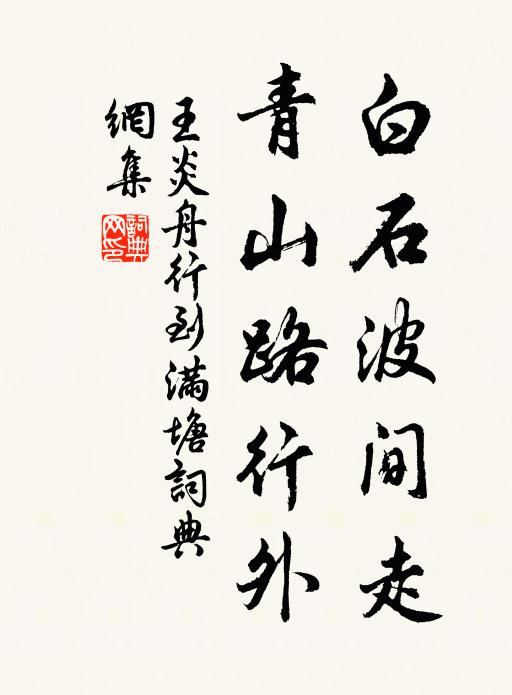 白石波间走
青山路行外
王炎舟行到满塘詞典
網集
詞典
网印